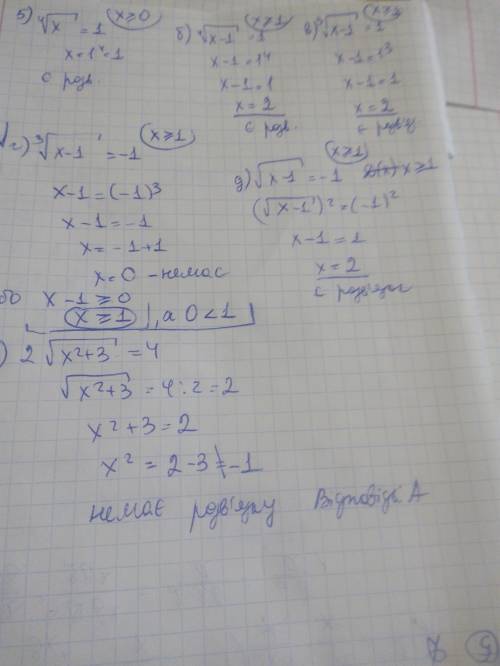 5) √x = 1 (x≥0)
x=1⁴=1
є розв.
б) ⁴√x-1 = 1 (x≥1)
x-1=1⁴
x-1=1
x=2
є розв.
в) ³√x-1 = 1
x-1=1³
x-1=1
x=2
є розв'яз
г) ³√x-1 = -1 (x≥1)
x-1=(-1)³
x-1=-1
x=-1+1
x=0 - немає
x-1≥0
x≥1, а 0<1
д) √x-1 = -1 (x≥1) x≥1
(√x-1)²=(-1)²
x-1=1
x=2
є розв'язок
) 2√x²+3 = 4
√x²+3 = 4:2=2
x²+3=2
x²=2-3=-1
немає розв'язку Відповідь А